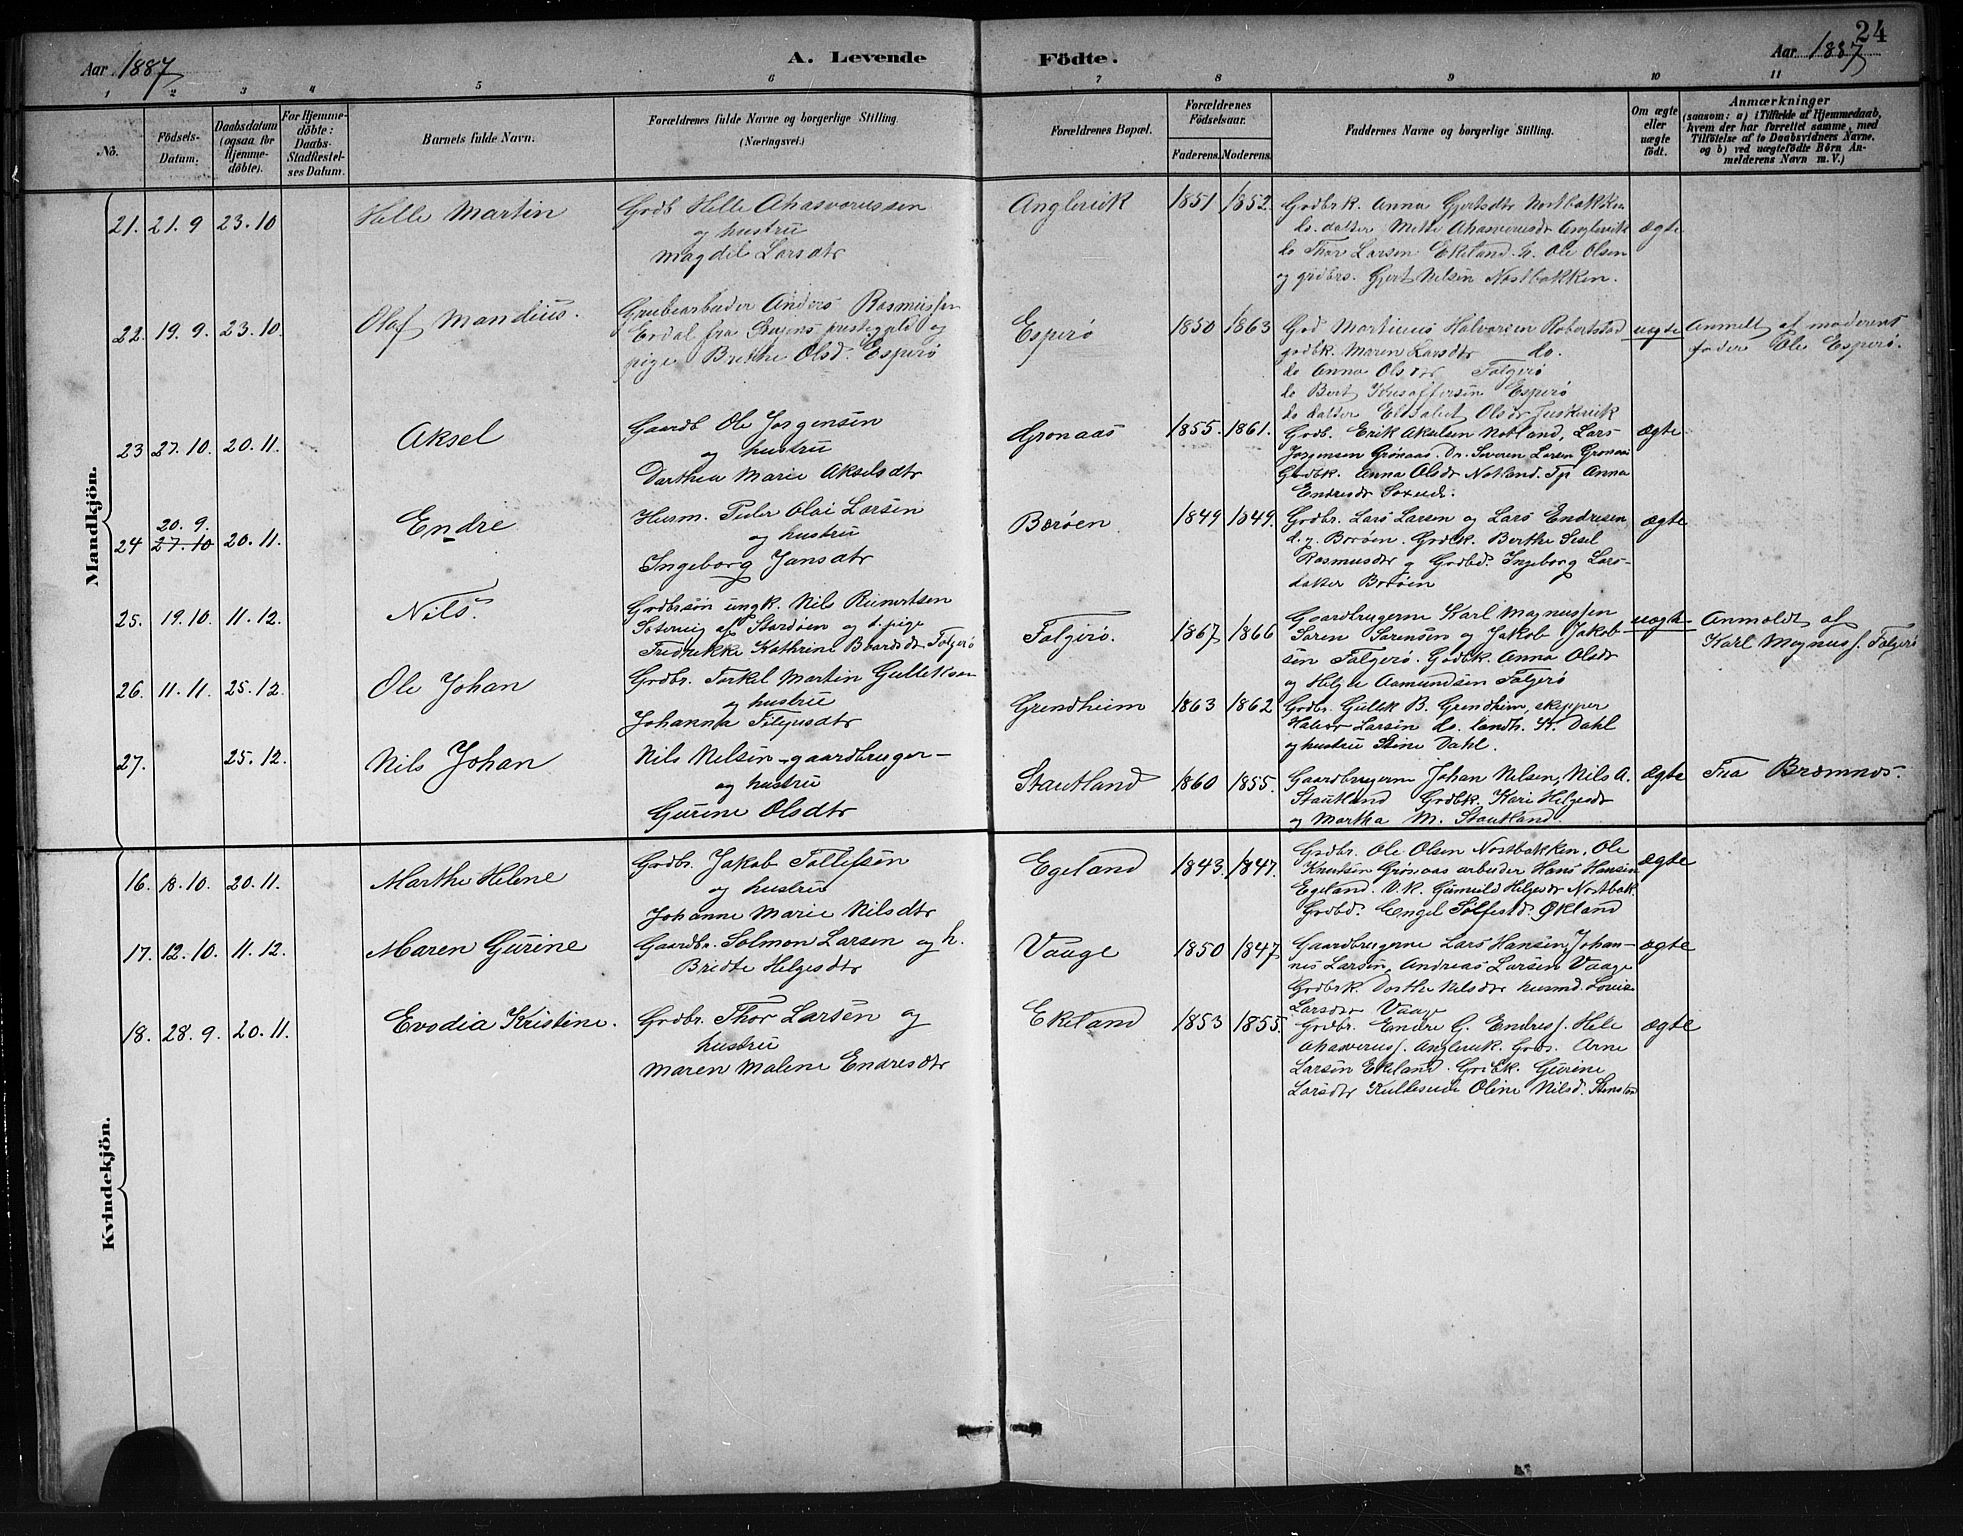 24
Aar 1887
A. Levende Födte.
Aar 1887
1 2 3 4 5 6 7 8 9 10 11
No.
Födsels-Datum.
Daabsdatum (ogsaa for Hjemme-döbte).
For Hjemme-döbte: Daabs-Stadfæstel-ses Datum.
Barnets fulde Navn.
Forældrenes fulde Navne og borgerlige Stilling.
(Næringsvei.)
Forældrenes Bopæl.
Forældrenes Födselsaar.
Faderens. Moderens.
Faddernes Navne og borgerlige Stilling.
Om ægte eller uægte födt.
Anmærkninger
(saasom: a) i Tilfælde af Hjemmedaab, hvem der har forrettet samme, med Tilföielse af to Daabsvidners Navne, og b) ved uægtefödte Börn An-melderens Navn m. V.)
Mandkjön.
21. 21.9 23.10 Helle Martin
Grdb Helle Ahasverussen
og hustru
Magdele Larsdtr
Anglevik 1851 1852.
Grdbrk. Anna Gjertsdtr Nostbakken
do. datter Mette Ahasverusdr Anglevik
do Thor Larsen Ekeland. Ole Olsen
og grdbrs. Gjert Nilsen Nostbakken.
ægte
22. 19.9. 23.10. Olaf Mandius.
Grubearbeider Anders Rasmussen
Erdal fra præstegjeld og
pige Brethe Olsd. Esperö
Esperö 1850 1863
Grd Martinus Halvorsen Robertstad
grdbk. Maren Larsdtr do.
do Anna Olsdtr Folgerö
do Bert Esperö
do datter Elisabet Olsdtr
uægte
Anmelt af moderens
fader Ole Esperö.
23 27.10. 20.11. Aksel
Gaardb Ole Jorgensen
og hustru
Dorthea Marie Akselsdtr
Gronaas 1855. 1861.
Grdb. Erik Akselsen Notland, Lars
Jorgensen Grönaas. Dr. Severin Larsen Gronaas
Grdbk. Anna Olsdr Notland. Tp Anna
Endresdr
ægte
24 20.9. 27.10 20.11. Endre
Husm. Peder Olai Larsen
og hustru
Ingeborg Jansdtr
Boröen 1849 1849.
Grdbr. Lars Larsen og Lars Endresen
d.y. Boröen. Grdbk. Berthe Sesel
Rasmusdr og Grdbd. Ingeborg Lars-
datter Boröen
ægte
25. 19.10. 11.12. Nils
Grdbrsön ungk. Nils Rienertsen
af Stordöen og t.pige
Fredrekke Kathrine Baardsdr Folgerö
Folgerö. 1867 1866
Gaardbrugerne Karl Magnussen
Soren Sorensen og Jakob Jakob
sen Folgerö. Grdbk. Anna Olsdr
og Helge Aamundsen Folgerö
uægte
Anmeldt af
Karl Magnuss. Folgerö
26. 11.11. 25.12. Ole Johan
Grdbr. Torkel Martin Gulleksen
og hustru
Johanna
Grendheim 1863 1862
Grdbr. Gullek B. Grendheim, skipper
Halvor Larsen do. landh. St. Dahl
og hustru Stine Dahl.
27. 25.12. Nils Johan
Nils Nelsen - gaardbruger -
og hustru
Gurine Olsdtr
Stautland 1860 1855.
Gaardbrugerne Johan Nilsen, Nils A.
Stautland Grdbk. Kari Helgesdr
og Martha M. Stautland.
ægte
Fra Bremnes.
Kvindekjön.
16. 18.10. 20.11. Marthe Helene
Grdbr. Jakob Tollefsen
og hustru
Johanne Marie Nilsdtr
Egeland 1843. 1847.
Grdbr. Ole Olsen Nostbakken, Ole
Knutsen Grönaas arbeider Hans Hansen
Egeland. V.K. Gunvild Helgesdr Nostbak.
Grdbd. Engel Sollfestd. Økland
ægte
17. 12.10. 11.12. Maren Gurine
Gaardbr. Solmon Larsen og h.
Bredte Helgesdtr
Vaage 1850 1847
Gaardbrugerne Lars Hansen, Johan-
nes Larsen, Andreas Larsen Vaage
Grdbrk. Dorthe Nilsdtr husmd. Lovise
Larsdtr Vaage
ægte
18. 28.9. 20.11. Evodia Kristine.
Grdbr. Thor Larsen og
hustru
Maren Malene Endresdtr
Ekeland 1853 1855.
Grdbr. Endre G. Endress. Hele
Ahasveruss. Anglevik. Grds. Arne
Larsen Ekeland. Grdbk. Gurine
Larsdtr Kulleseid Oline Nilsd.
ægte